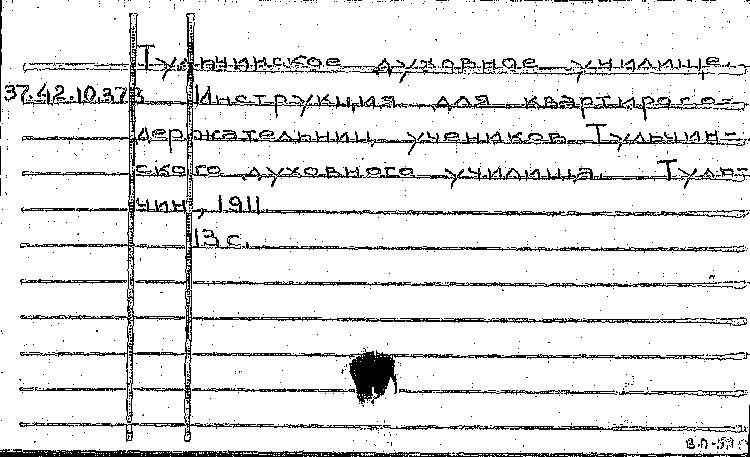 Тульчинское духовное училище.
37.42.10.373 Инструкция для квартиросо-
держательниц учеников Тульчин-
ского духовного училища. Туль-
чин, 1911
13 с.